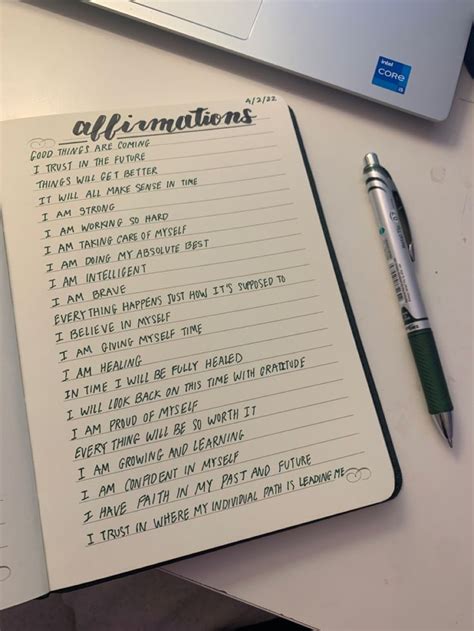 intel
CORE
i5
4/2/22
affirmations
GOOD THINGS ARE COMING
I TRUST IN THE FUTURE
THINGS WILL GET BETTER
IT WILL ALL MAKE SENSE IN TIME
I AM STRONG
I AM WORKING SO HARD
I AM TAKING CARE OF MYSELF
I AM DOING MY ABSOLUTE BEST
I AM INTELLIGENT
I AM BRAVE
EVERYTHING HAPPENS JUST HOW IT'S SUPPOSED TO
I BELIEVE IN MYSELF
I AM GIVING MYSELF TIME
I AM HEALING
IN TIME I WILL BE FULLY HEALED
I WILL LOOK BACK ON THIS TIME WITH GRATITUDE
I AM PROUD OF MYSELF
EVERY THING WILL BE SO WORTH IT
I AM GROWING AND LEARNING
I AM CONFIDENT IN MYSELF
I HAVE FAITH IN MY PAST AND FUTURE
I TRUST IN WHERE MY INDIVIDUAL PATH IS LEADING ME